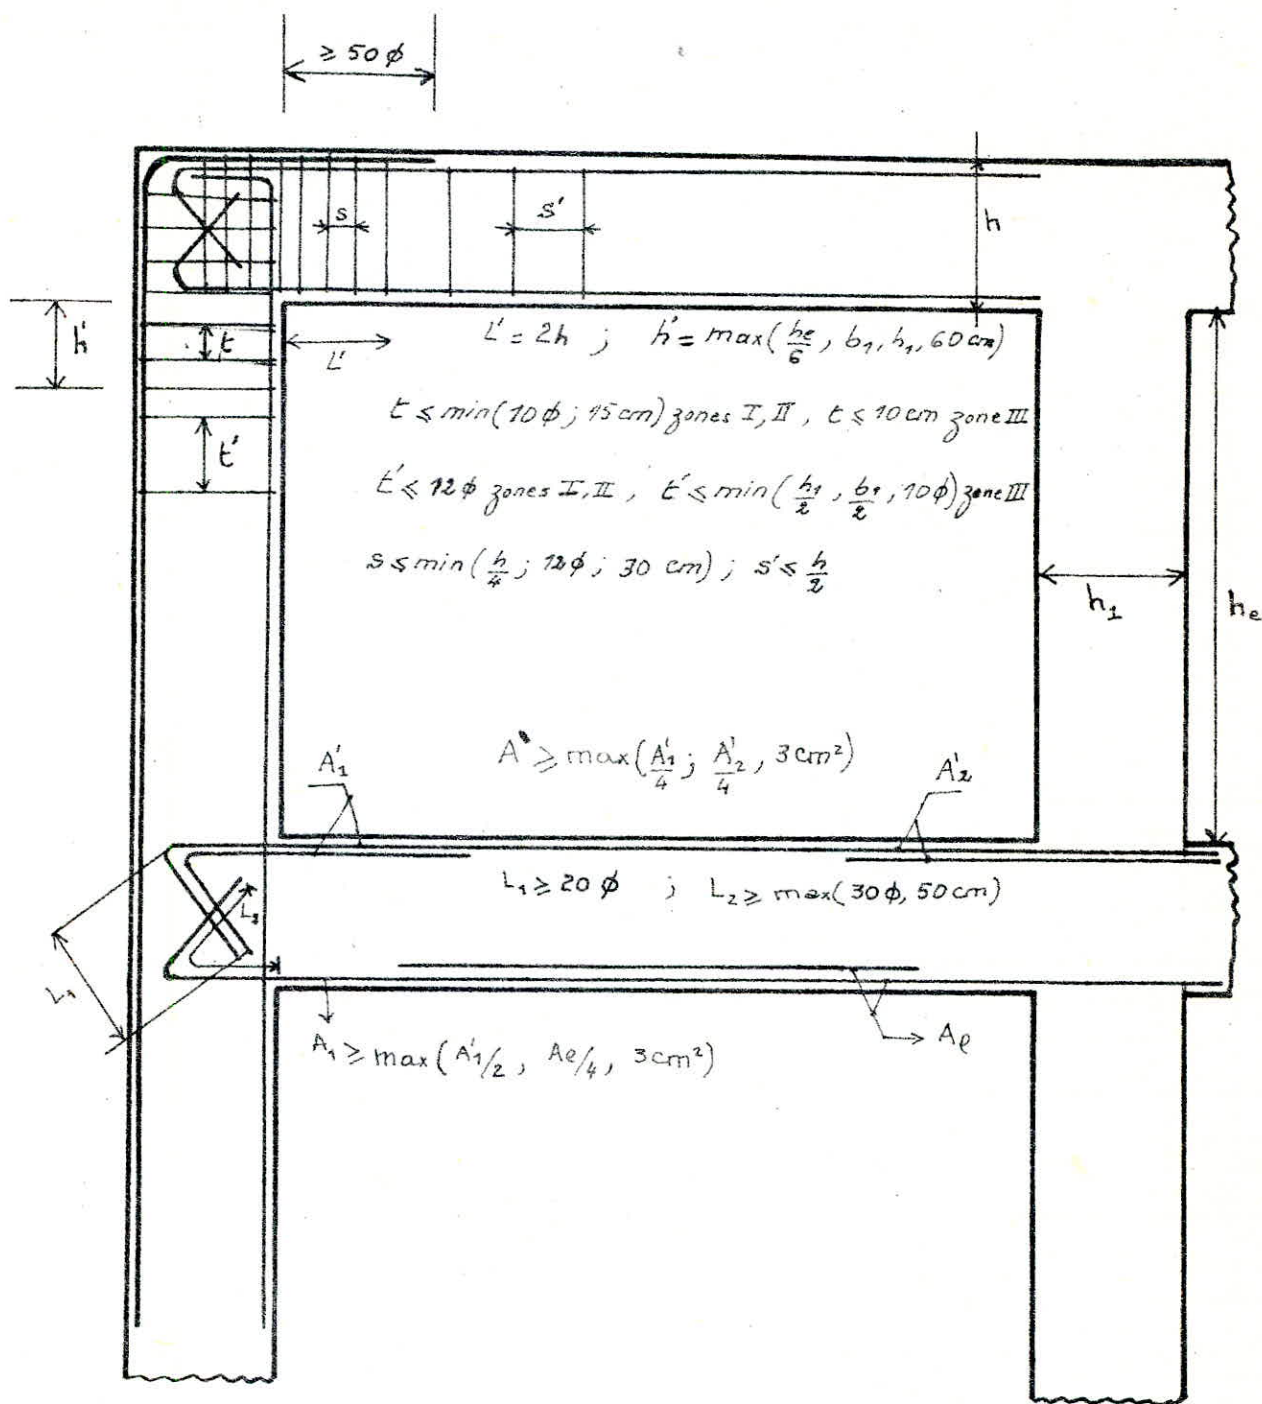 ≥ 50 ϕ
s
s'
h
h'
t
L'
L' = 2h ; h' = max(he/6, b1, h1, 60 cm)
t ≤ min(10ϕ ; 15cm) zones I, II , t ≤ 10 cm zone III
t'
t' ≤ 12ϕ zones I, II , t' ≤ min(h1/2 , b1/2 , 10ϕ) zone III
s ≤ min(h/4 ; 12ϕ ; 30 cm) ; s' ≤ h/2
h1
he
A'1
A' ≥ max(A'1/4 ; A'2/4 , 3 cm²)
A'2
L1 ≥ 20 ϕ ; L2 ≥ max(30ϕ, 50 cm)
L2
L1
A1 ≥ max(A'1/2 , Al/4 , 3 cm²)
Al